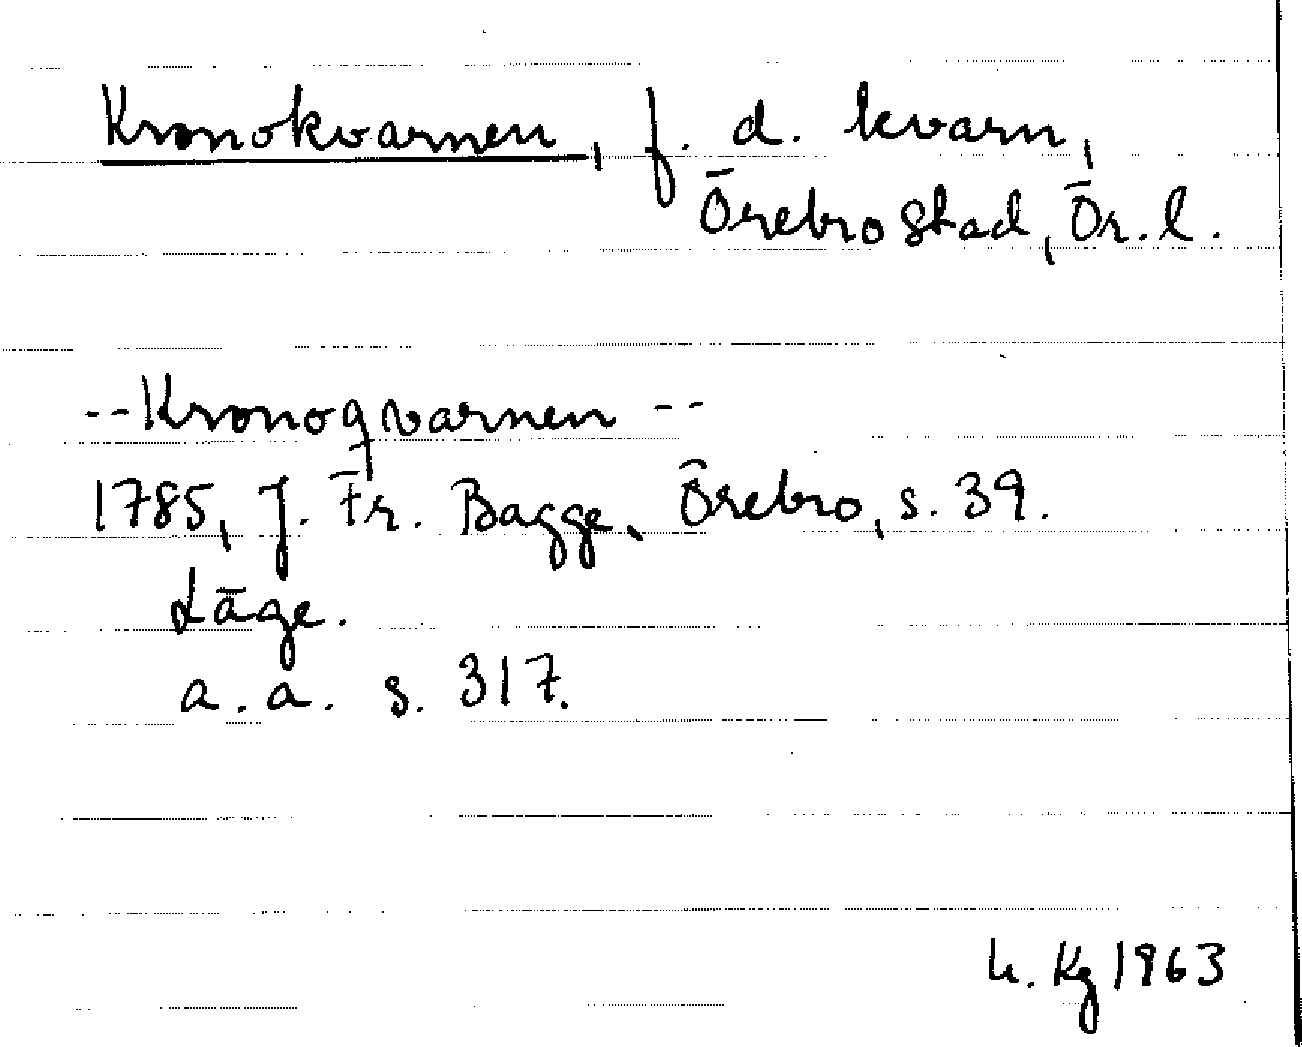 Kronokvarnen, f. d. kvarn,
Örebro stad, Ör. l.
-- Kronoqvarnen --
1785, J. Fr. Bagge, Örebro, s. 39.
Läge.
a. a. s. 317.
h. Kg 1963